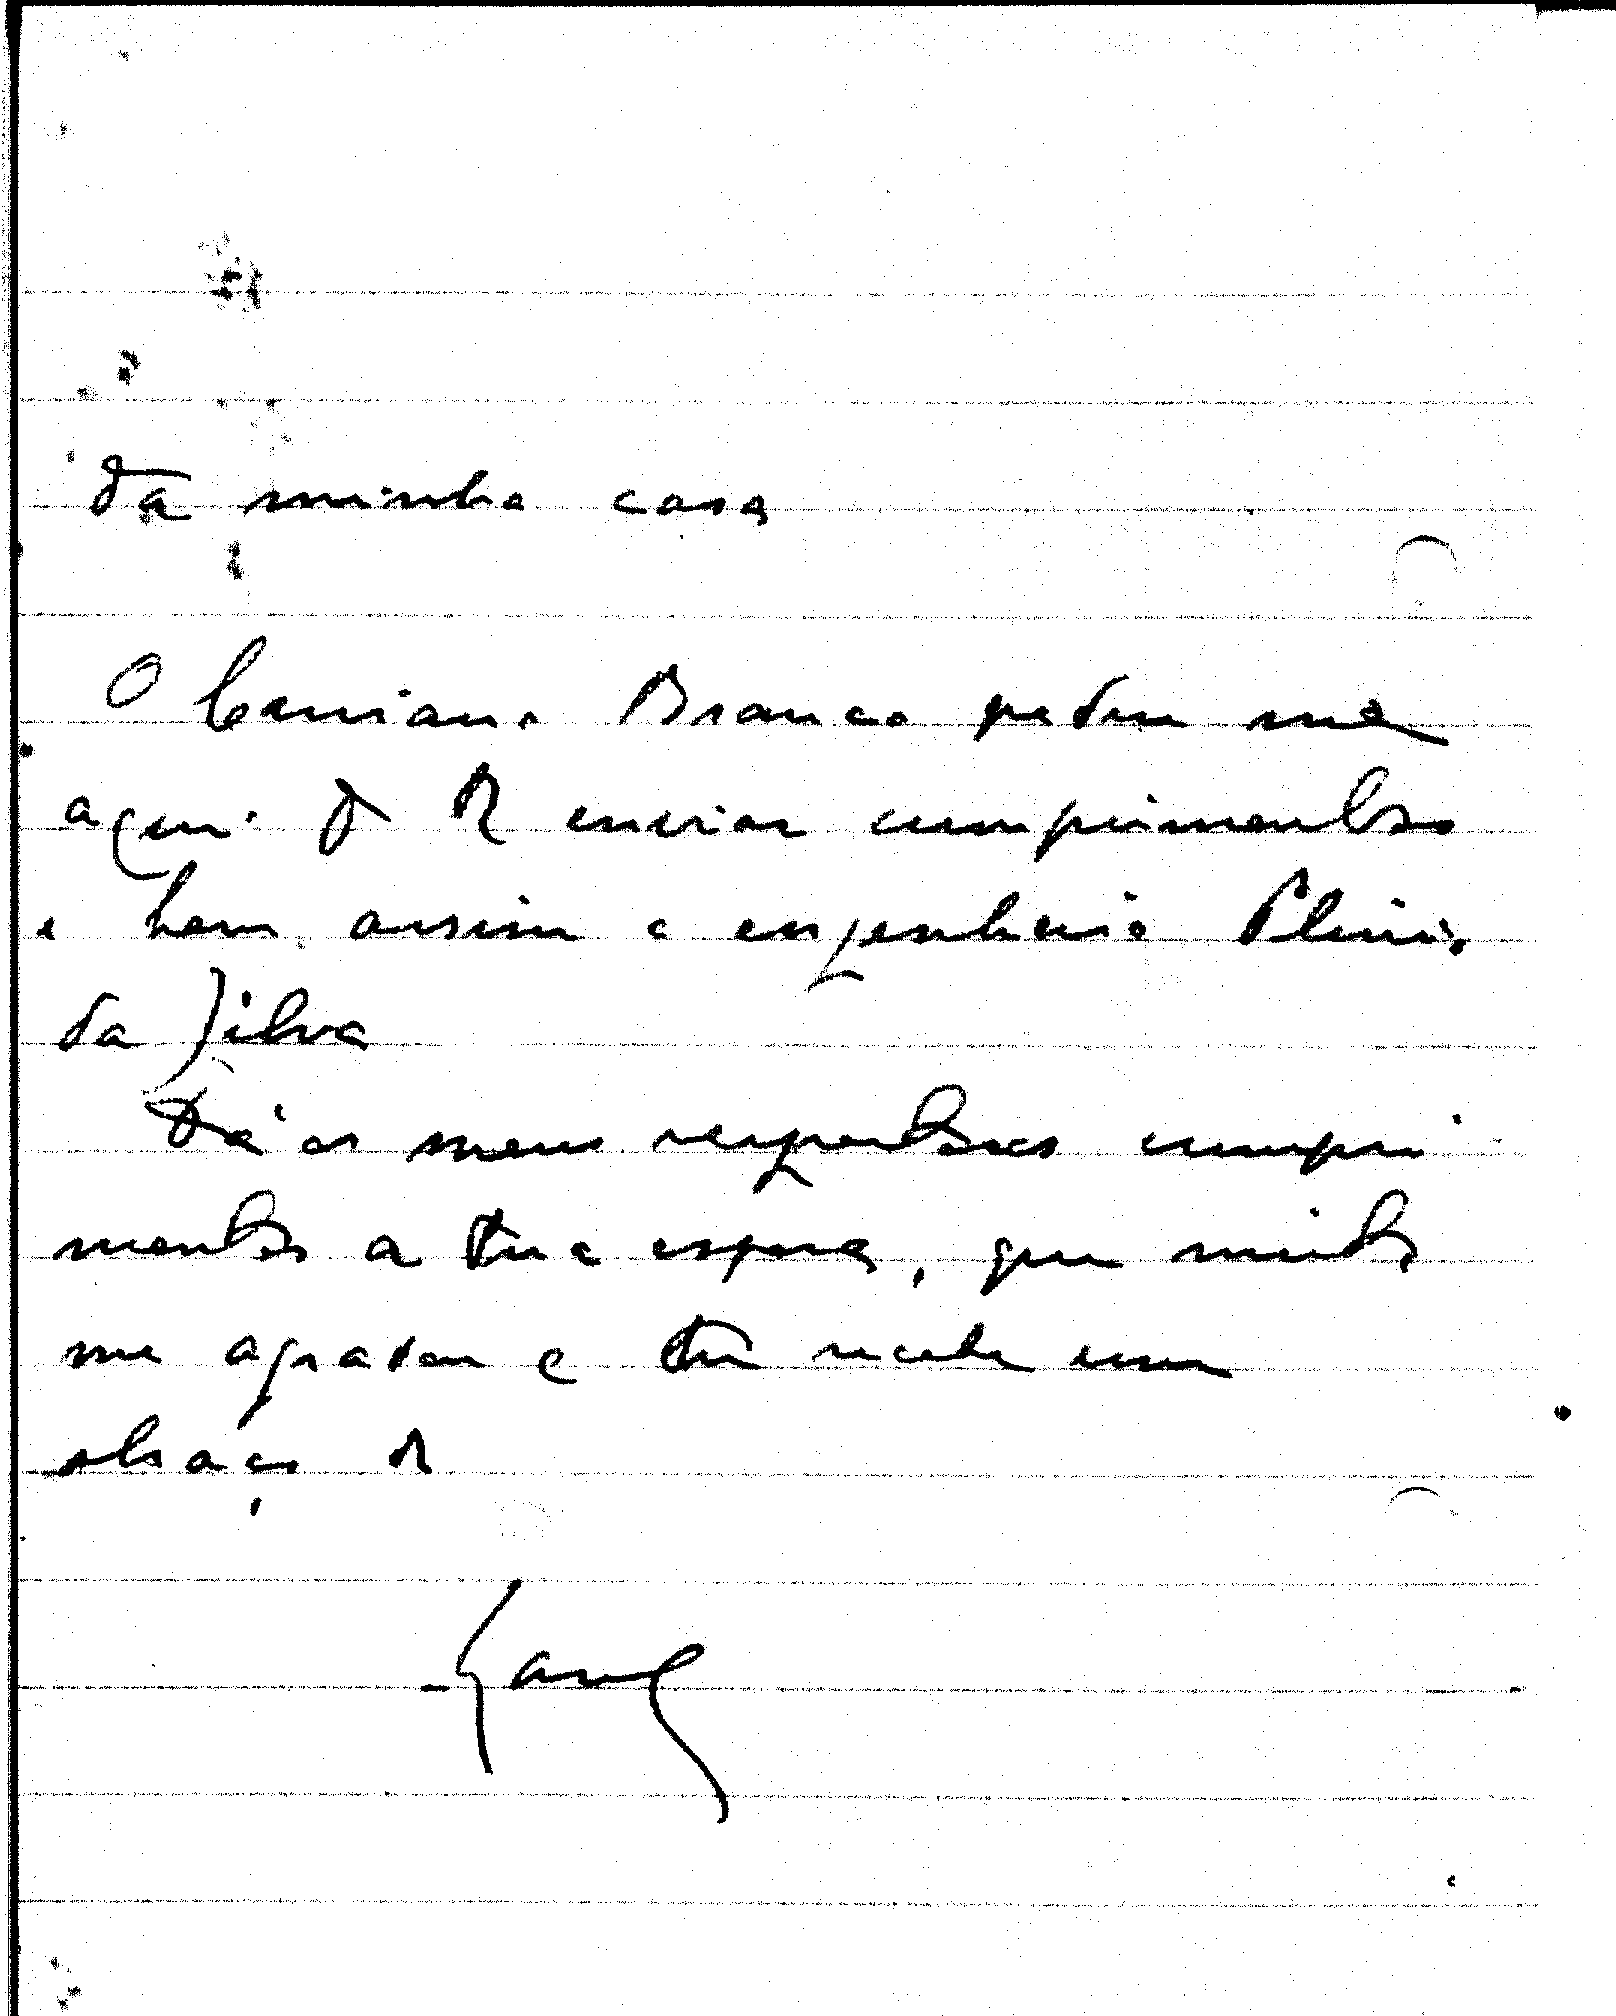 da minha casa
O Cassiano Branco pediu me
aqui de te enviar cumprimentos
e bem assim o engenheiro Plinio
da Silva
Dá os meus respeitosos cumpri
mentos a tua esposa, que muito
me agradou e tu recebe um
abraço de